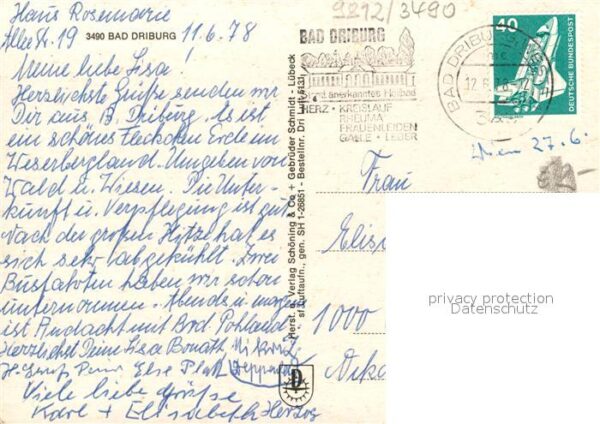 Haus Rosemarie
Allee Str. 19 3490 BAD DRIBURG 11.6.78
Meine liebe Lisa!
Herzlichste Grüße senden wir
Dir aus B. Driburg. Es ist
ein schönes Fleckchen Erde im
Weserbergland. Umgeben von
Wald u. Wiesen. Die Unter-
kunft u. Verpflegung ist gut
Nach der großen Hitze hat es
sich sehr abgekühlt. Zwei
Busfahrten haben wir schon
unternommen. Abends u. morgens
ist Andacht mit Brd. Pohland
Herzlichst Deine Lisa Bonath
H. Gruß Else
Viele liebe Grüße
Karl + Elisabeth Herzog
Herst. u. Verlag Schöning & Co + Gebrüder Schmidt - Lübeck
sf Luftaufn., gen. SH 1-26851 - Bestellnr. Dri Luft 6131
9212/3490
BAD DRIBURG
anerkanntes Heilbad
HERZ · KREISLAUF
RHEUMA
FRAUENLEIDEN
GALLE · LEBER
BAD DRIBURG
12.6.78
40
DEUTSCHE BUNDESPOST
Wien 27.6.
Frau
Elis
1000
privacy protection
Datenschutz